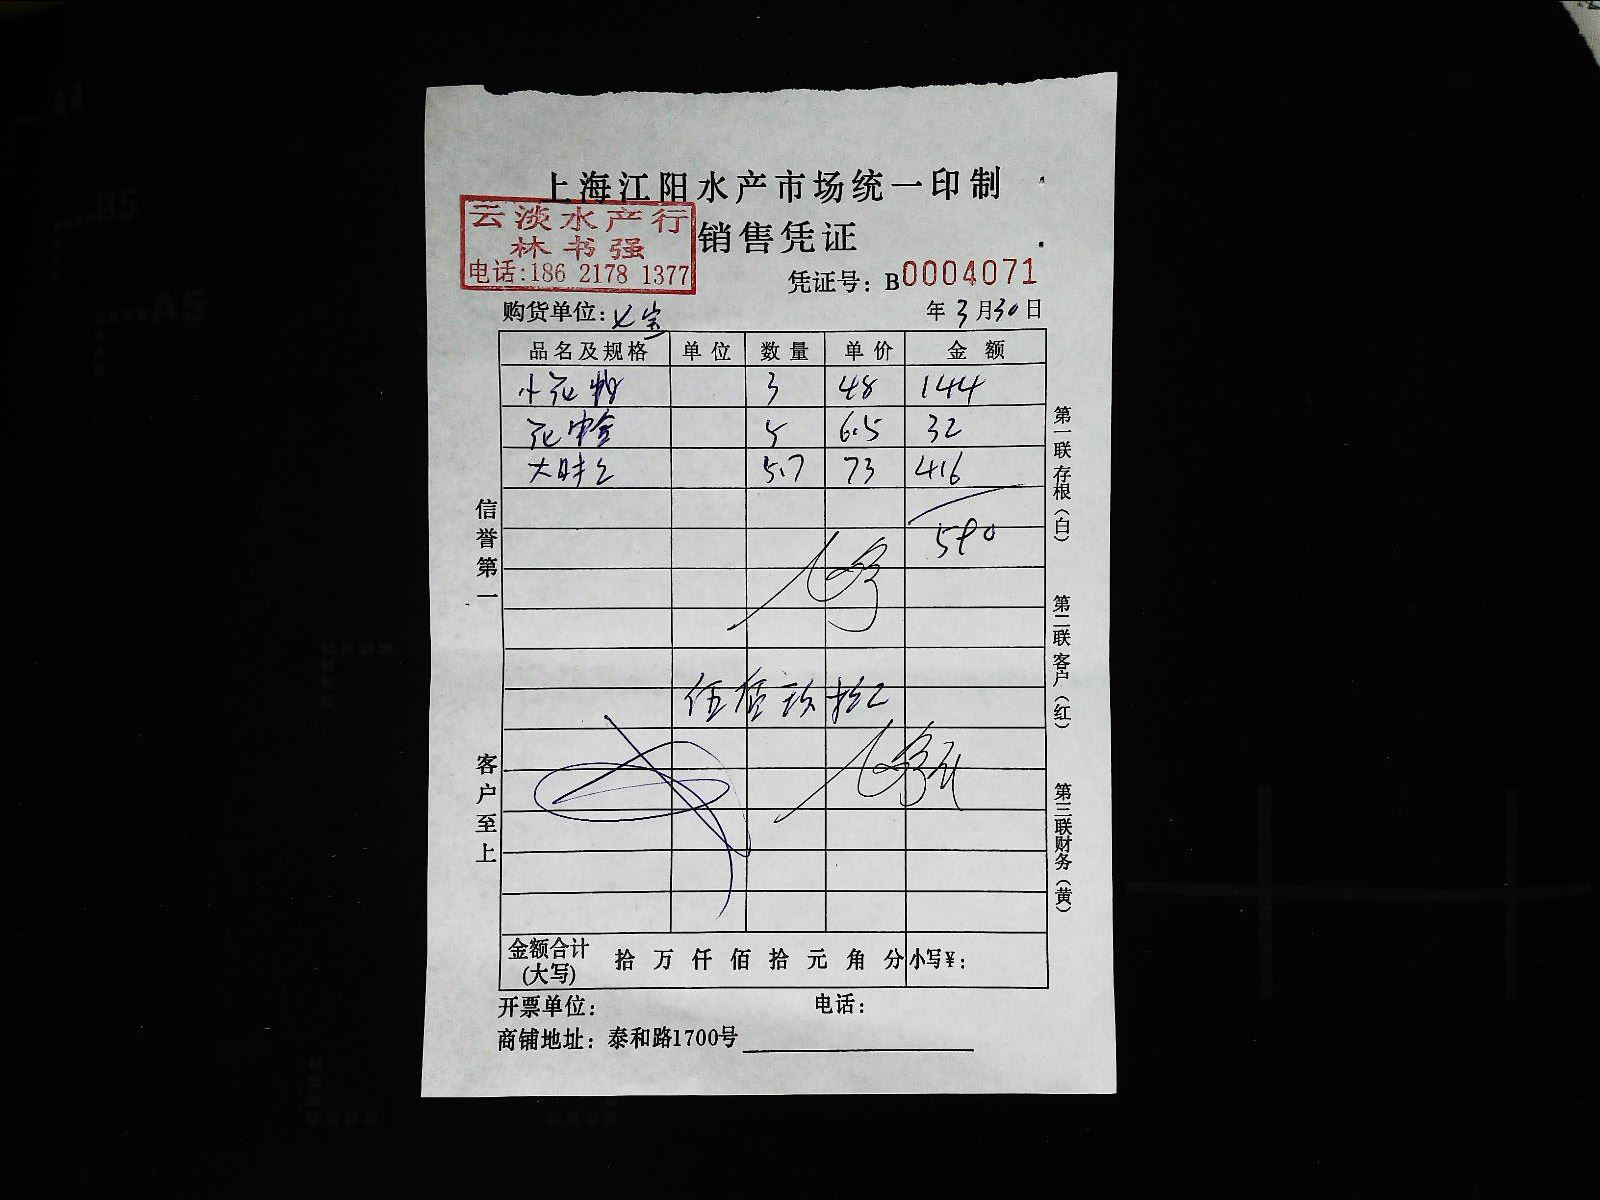 上海江阳水产市场统一印制
云淡水产行
林书强
电话:186 2178 1377
销售凭证
凭证号：B0004071
购货单位：七宝
年3月30日
品名及规格 单位 数量 单价 金额
小花 3 48 144
花 5 6.5 32
大 5.7 73 416
590
伍佰玖拾
信誉第一
客户至上
第一联存根（白）
第二联客户（红）
第三联财务（黄）
金额合计(大写) 拾 万 仟 佰 拾 元 角 分 小写¥：
开票单位： 电话：
商铺地址：泰和路1700号